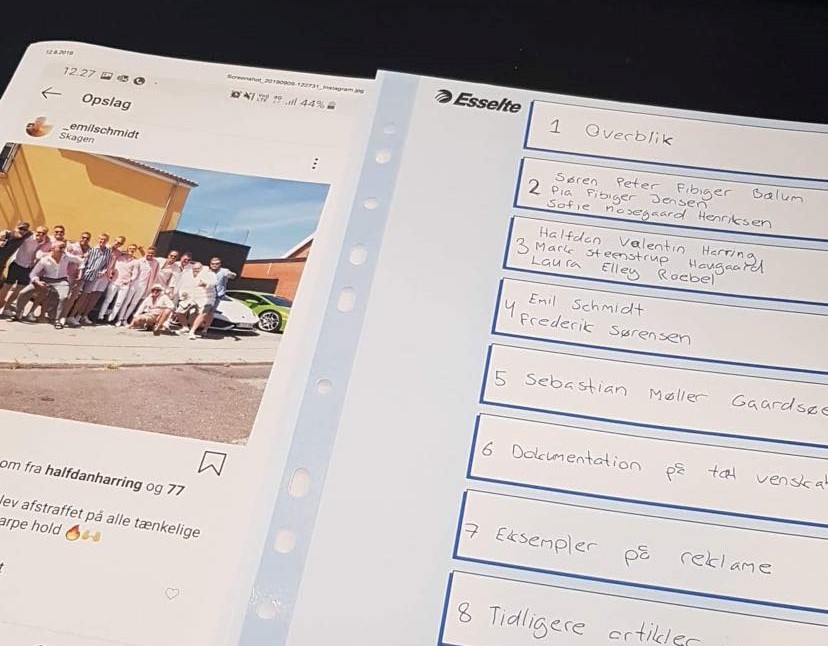 12.9.2019
Screenshot_20190909-122731_Instagram.jpg
12.27
44%
Opslag
_emilschmidt
Skagen
om fra halfdanharring og 77
lev afstraffet på alle tænkelige
arpe hold 🔥🙌
Esselte
1 Overblik
2 Søren Peter Fibiger Balum
Pia Fibiger Jensen
Sofie Mosegaard Henriksen
3 Halfdan Valentin Harring
Mark Steenstrup Haugaard
Laura Elley Roebel
4 Emil Schmidt
Frederik Sørensen
5 Sebastian Møller Gaardsøe
6 Dokumentation på tæt venska
7 Eksempler på reklame
8 Tidligere artikler